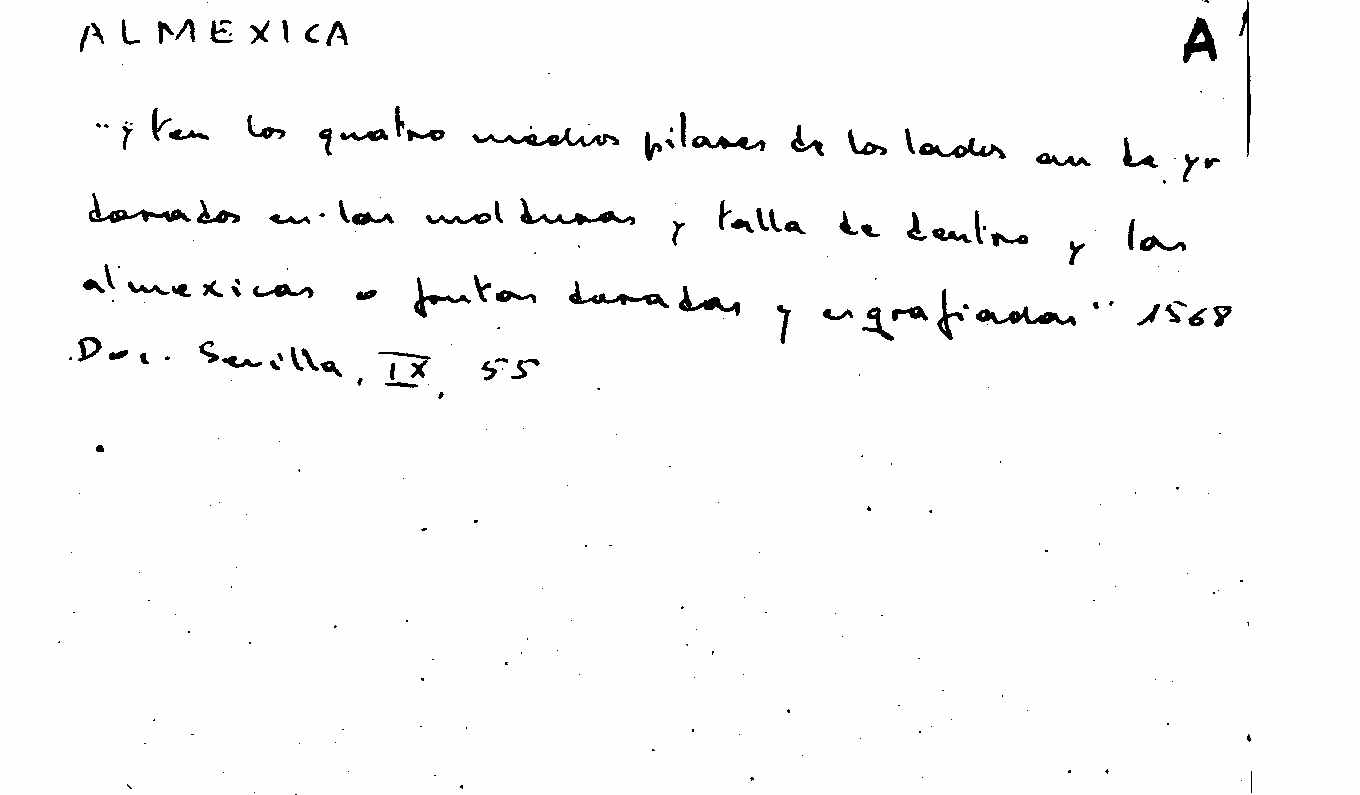 ALMEXICA A
"yten los quatro medios pilares de los lados an de yr
dorados en las molduras y talla de dentro y las
almexicas o frutas doradas y esgrafiadas" 1568
Doc. Sevilla, IX, 55